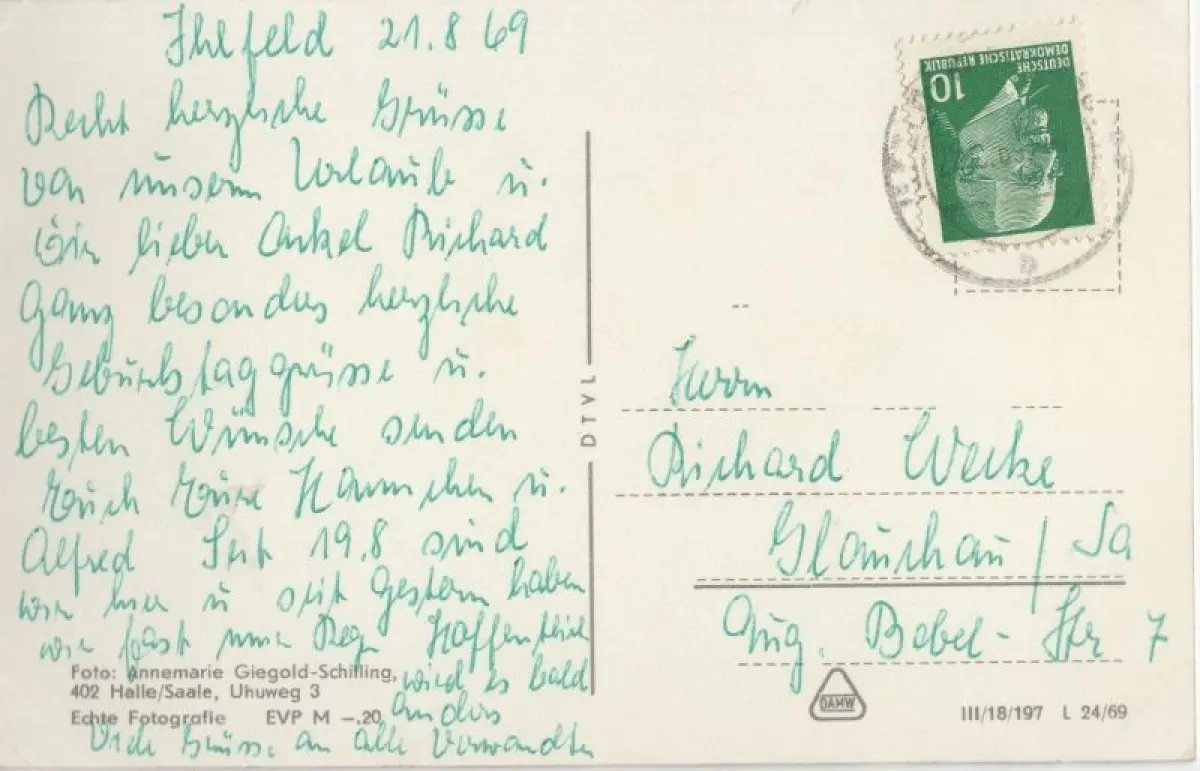 Ihlfeld 21.8 69
Recht herzliche Grüsse
von unserm Urlaub u.
Dir lieber Onkel Richard
ganz besonders herzliche
Geburtstaggrüsse u.
besten Wünsche senden
Euch Eure Hannchen u.
Alfred Seit 19.8 sind
wir hier u seit gestern haben
wir fast nur Reg. Hoffentlich
wird es bald
anders
Viele Grüsse an alle Verwandten
Foto: Annemarie Giegold-Schilling,
402 Halle/Saale, Uhuweg 3
Echte Fotografie EVP M -.20
DTVL
DEUTSCHE
DEMOKRATISCHE REPUBLIK
10
Herrn
Richard Wecke
Glauchau / Sa
Aug. Bebel-Str 7
DAMW
III/18/197 L 24/69